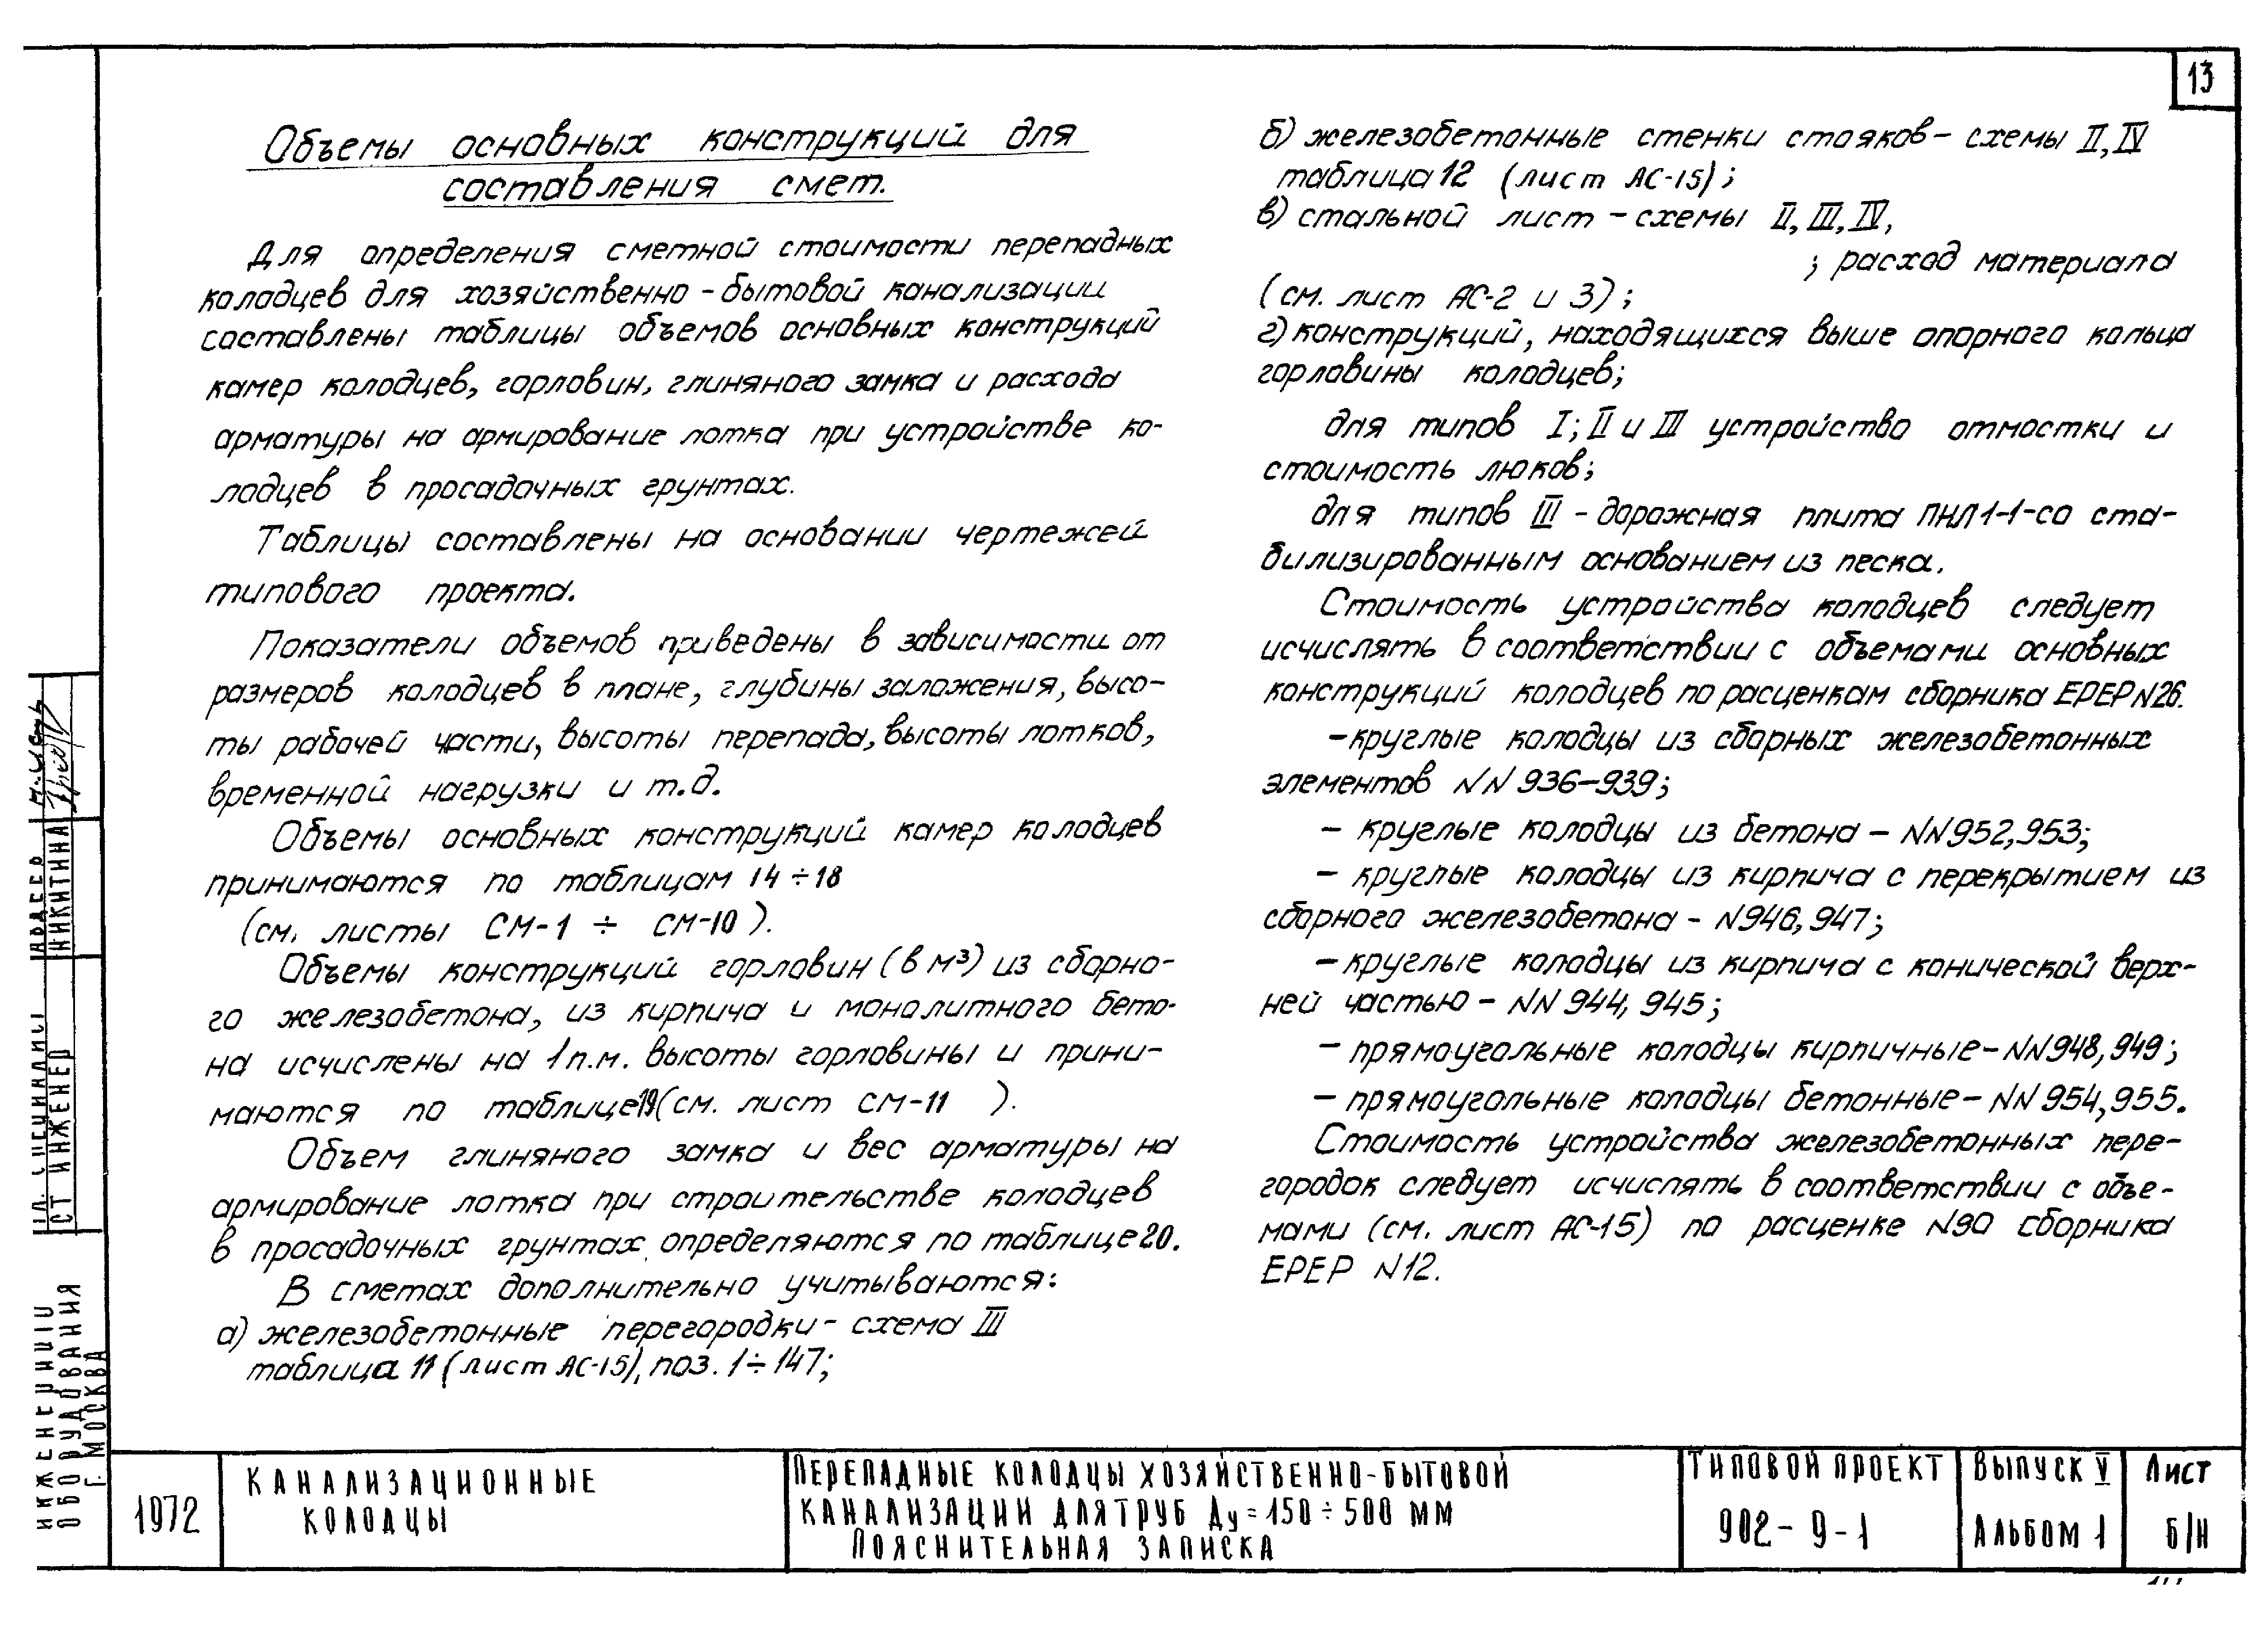 13
Объемы основных конструкций для
составления смет.
Для определения сметной стоимости перепадных
колодцев для хозяйственно-бытовой канализации
составлены таблицы объемов основных конструкций
камер колодцев, горловин, глиняного замка и расхода
арматуры на армирование лотка при устройстве ко-
лодцев в просадочных грунтах.
Таблицы составлены на основании чертежей
типового проекта.
Показатели объемов приведены в зависимости от
размеров колодцев в плане, глубины заложения, высо-
ты рабочей части, высоты перепада, высоты лотков,
временной нагрузки и т.д.
Объемы основных конструкций камер колодцев
принимаются по таблицам 14÷18
(см. листы СМ-1 ÷ СМ-10).
Объемы конструкций горловин (в м³) из сборно-
го железобетона, из кирпича и монолитного бето-
на исчислены на 1 п.м. высоты горловины и прини-
маются по таблице 19 (см. лист СМ-11 ).
Объем глиняного замка и вес арматуры на
армирование лотка при строительстве колодцев
в просадочных грунтах определяются по таблице 20.
В сметах дополнительно учитываются:
а) железобетонные перегородки - схема III
таблица 11 (лист АС-15), поз. 1÷147;
б) железобетонные стенки стояков - схемы II, IV
таблица 12 (лист АС-15);
в) стальной лист - схемы II, III, IV,
; расход материала
(см. лист АС-2 и 3);
г) конструкций, находящихся выше опорного кольца
горловины колодцев;
для типов I; II и III устройство отмостки и
стоимость люков;
для типов III - дорожная плита ПНЛ1-1-со ста-
билизированным основанием из песка.
Стоимость устройства колодцев следует
исчислять в соответствии с объемами основных
конструкций колодцев по расценкам сборника ЕРЕР N26.
- круглые колодцы из сборных железобетонных
элементов NN 936-939;
- круглые колодцы из бетона - NN952,953;
- круглые колодцы из кирпича с перекрытием из
сборного железобетона - N946,947;
- круглые колодцы из кирпича с конической верх-
ней частью - NN 944, 945;
- прямоугольные колодцы кирпичные - NN948,949;
- прямоугольные колодцы бетонные - NN 954,955.
Стоимость устройства железобетонных пере-
городок следует исчислять в соответствии с объе-
мами (см. лист АС-15) по расценке N90 сборника
ЕРЕР N12.
НИКИТИНА
СТ ИНЖЕНЕР
ОБОРУДОВАНИЯ
Г. МОСКВА
1972
КАНАЛИЗАЦИОННЫЕ
КОЛОДЦЫ
ПЕРЕПАДНЫЕ КОЛОДЦЫ ХОЗЯЙСТВЕННО-БЫТОВОЙ
КАНАЛИЗАЦИИ ДЛЯ ТРУБ Ду=150÷500 ММ
ПОЯСНИТЕЛЬНАЯ ЗАПИСКА
ТИПОВОЙ ПРОЕКТ
902-9-1
ВЫПУСК V
АЛЬБОМ 1
ЛИСТ
Б/Н